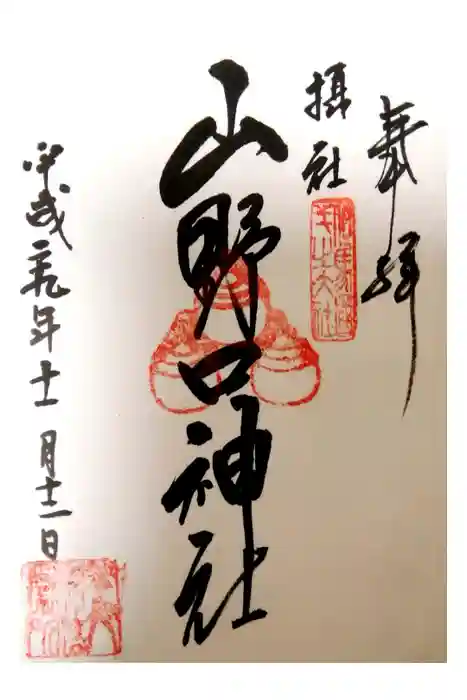 奉拝
摂社
山野口神社
平成二九年十一月十二日